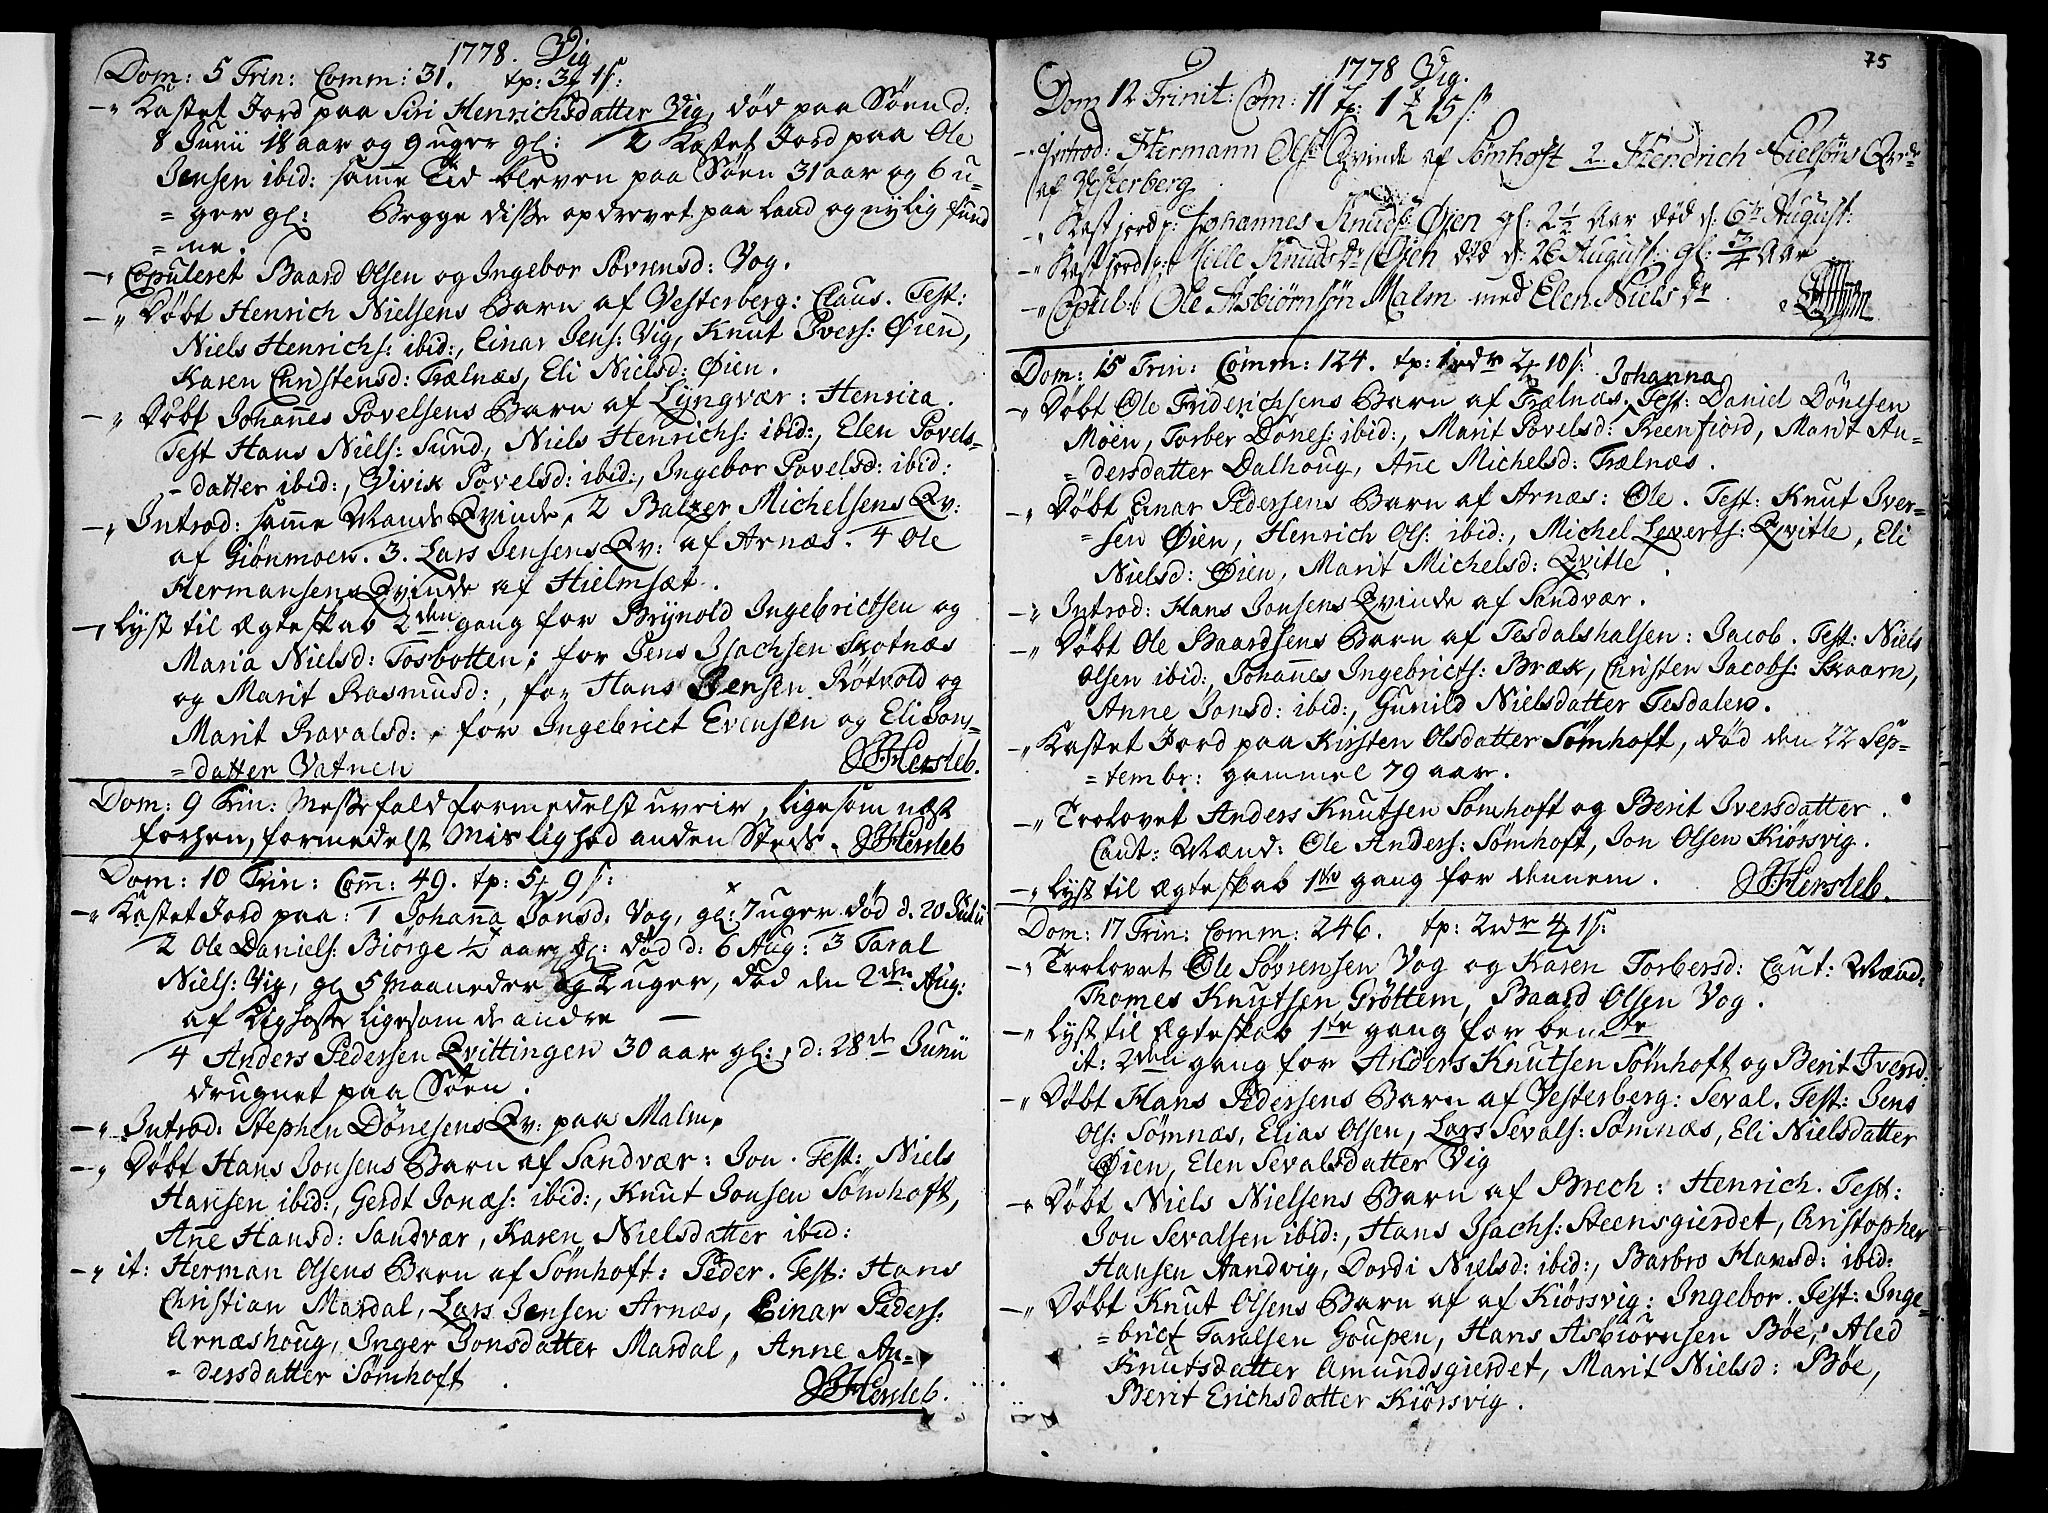 1778. Vig
Dom: 5 Trin: Comm: 31. tp: 3 1ß:
Kastet Jord paa Siri Henrichsdatter Vig, død paa Søen d:
8 Junii 18 aar og 9 uger gl: 2 Kastet Jord paa Ole
Jensen ibid: samme Tid bleven paa Søen 31 aar og 6 u-
= ger gl: Begge disse opdrevet paa Land og nylig fund
= ne.
Copuleret Baard Olsen og Ingebor Sovrensd: Vog.
Døbt Henrich Nielsens Barn af Vesterberg: Claus. Test:
Niels Henrichs: ibid:, Einar Jens: Vig, Knut Ivers: Øien,
Karen Christensd: Trælnæs, Eli Nielsd: Øien.
Døbt Johañes Povelsens Barn af Lyngvær: Henrica.
Test Hans Niels: Sund, Niels Henrichs: ibid:, Elen Povels-
- datter ibid:, Vivik Povelsd: ibid:, Ingebor Povelsd: ibid:
Introd: samme Mands Qvinde, 2 Balzer Michelsens Qv:
af Giønmoen. 3. Lars Jensens Qv: af Arnæs. 4 Ole
Hermansens Qvinde af Hielmsæt.
Lyst til Ægteskab 2den gang for Brynold Ingebrictsen og
Maria Nielsd: Tosbotten; for Jens Isachsen Skotnæs
og Marit Rasmusd:, for Hans Jensen Røtvold og
Marit Ravalsd:, for Ingebrict Evensen og Eli Jons-
= datter Vatnen Hersleb.
Dom: 9 Trin: Messefald formedelst uveir, ligesom næst
forhen, formedelst Mislighed anden Steds. Hersleb
Dom: 10 Trin: Com̃: 49. tp: 5 9ß:
Kastet Jord paa: 1 Johanna Jonsd: Vog, gl: 7 uger død d. 20 Julii
2 Ole Daniels: Biørge ½ aar gl: død d: 6 Aug: 3 Taral
Niels: Vig, gl 5 Maaneder og 2 uger, død den 2den Aug:
af Kighoste ligesom de andre
4 Anders Pedersen Qvittingen 30 aar gl:, d: 28de Junii
drugnet paa Søen.
Introd: Stephen Dönesens Qv: paa Malm,
Døbt Hans Jonsens Barn af Sandvær: Jon. Test: Niels
Hansen ibid:, Gerdt Jonæs: ibid:, Knut Jonsen Sømhoft,
Añe Hansd: Sandvær, Karen Nielsdatter ibid:
it: Herman Olsens Barn af Sømhoft: Peder. Test: Hans
Christian Mardal, Lars Jensen Arnæs, Einar Peders:
Arnæshoug, Inger Jonsdatter Mardal, Anne An-
= dersdatter Sømhoft Hersleb.
75
1778 Vig.
Dom 12 Trinit: Com: 11 tp: 1 15 ß
Hermann Olss Qvinde af Sømhoft 2. Hendrich Nielsøns
af Vesterberg
Kast jord p: Johannes Knuds: Øjen gl: 2½ Aar død d: 6te August:
Kast jord p: Knuds Dr Øjen død d: 26 August: gl: ¾ Aar
Copul: Ole Asbiørnsøn Malm med Elen Niels Dr
Dom: 15 Trin: Comm: 124. tp: 1rdr 2 10ß: Johanna
Døbt Ole Friderichsens Barn af Trælnæs. Test: Daniel Dönesen
Moen, Torber Dönes: ibid:, Marit Povelsd: Reenfiord, Marit An-
= dersdatter Dalhoug, Añe Michelsd: Trælnæs.
Døbt Einar Pedersens Barn af Arnæs: Ole. Test: Knut Iver-
= sen Øien, Henrich Ols: ibid:, Michel Leverts: Qvitle, Eli
Nielsd: Øien, Marit Michelsd: Qvitle.
Introd: Hans Jonsens Qvinde af Sandvær.
Døbt Ole Baardsens Barn af Tesdalshalsen: Jacob. Test: Niels
Olsen ibid:, Johañes Ingebricts: Bræk, Christen Jacobs: Skaarn,
Anne Jonsd: ibid:, Gunild Nielsdatter Tesdalen.
Kastet Jord paa Kirsten Olsdatter Sømhoft, død den 22 Sep-
= tembr: gammel 79 aar.
Trolovet Anders Knutsen Sømhoft og Berit Iversdatter.
Caut: Mænd: Ole Anders: Sømhoft, Jon Olsen Kiørsvig.
Lyst til Ægteskab 1ste gang for dennem. Hersleb.
Dom: 17 Trin: Comm: 246. tp: 2rdr 4 1ß:
Trolovet Ole Søvrensen Vog og Karen Torbersd: Caut: Mænd:
Thomes Knutsen Grøttem, Baard Olsen Vog.
Lyst til Ægteskab 1ste gang for bemte
it: 2den gang for Anders Knutsen Sømhoft og Berit Iversd:
Døbt Hans Pedersens Barn af Vesterberg: Seval. Test: Jens
Ols: Sømnæs, Elias Olsen, Lars Sevals: Sømnæs, Eli Nielsdatter
Øien, Elen Sevalsdatter Vig
Døbt Niels Nielsens Barn af Brech: Henrich. Test:
Jon Sevalsen ibid:, Hans Isachs: Steensgierdet, Christopher
Hansen Aandvig, Dordi Nielsd: ibid:, Barbro Hansd: ibid:
Døbt Knut Olsens Barn af af Kiørsvig: Ingebor. Test: Inge-
= brict Taralsen Goupen, Hans Asbiørnsen Bøe, Aled
Knutsdatter Amundsgierdet, Marit Nielsd: Bøe,
Berit Erichsdatter Kiørsvig.